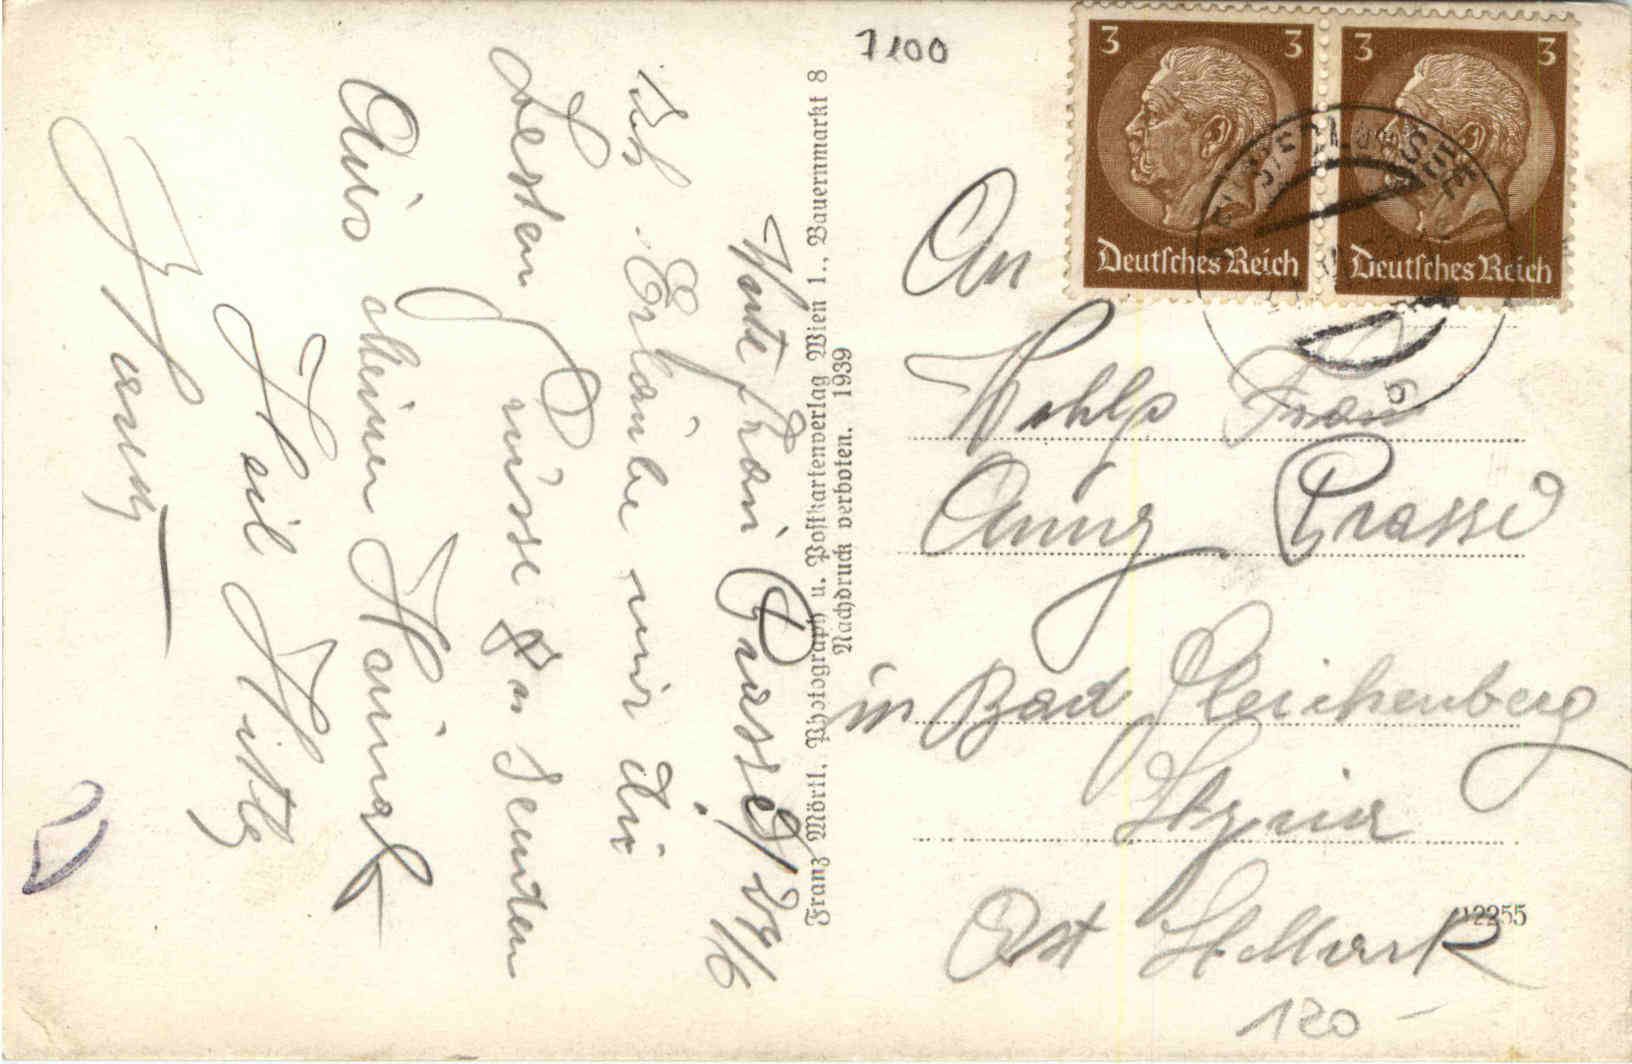 7100
3 3
3 3
Deutsches Reich
Deutsches Reich
SEE
6
An
Wohlg Frau
Anny Prassé
in Bad Gleichenberg
Styria
Ost St. Mark
12255
120 -
Franz Mörtl, Photograph u. Postkartenverlag Wien 1., Bauernmarkt 8
Nachdruck verboten. 1939
Frau Prassé
Ich Erlaube mir die
besten Grüsse zu senden
Aus meiner Heimat
Heil Hitler